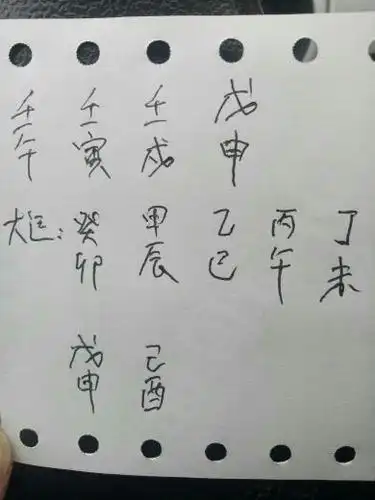 壬午 壬寅 壬戌 戊申
大运：癸卯 甲辰 乙巳 丙午 丁未
戊申 己酉